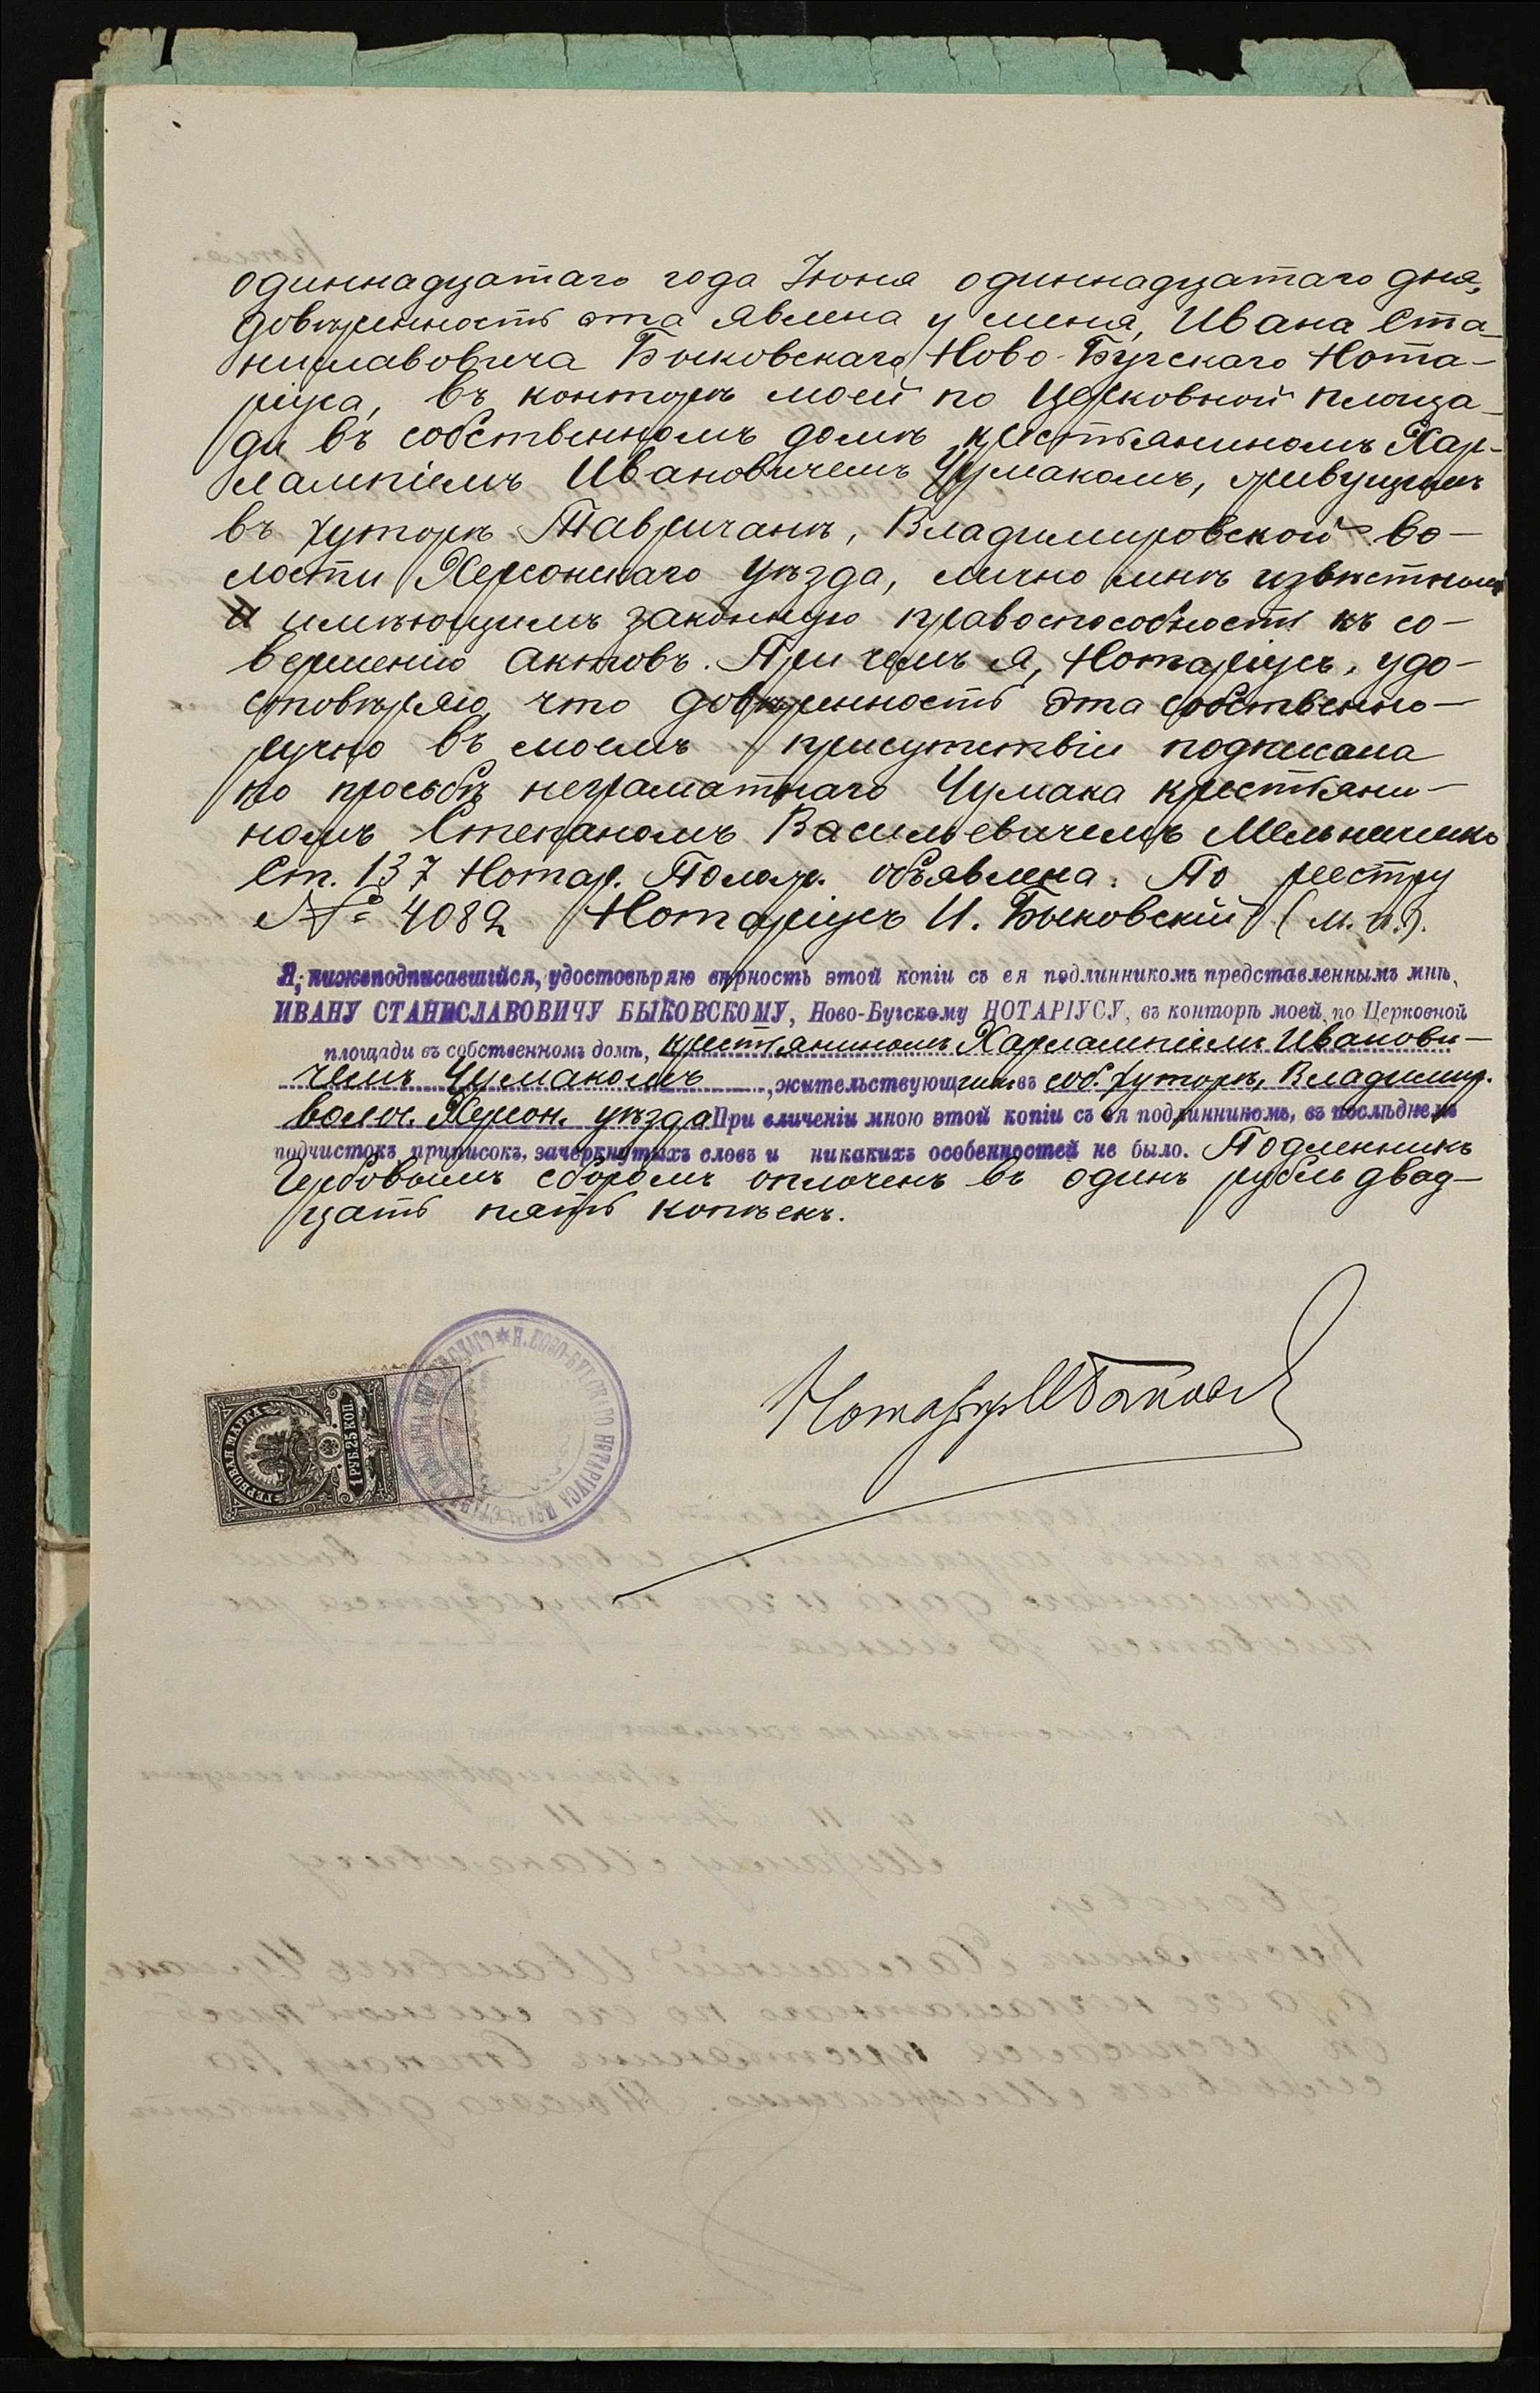 одиннадцатаго года Іюня одиннадцатаго дня,
довѣренность эта явлена у меня, Ивана Ста-
ниславовича Быковскаго, Ново-Бугскаго Нота-
ріуса, въ конторѣ моей по Церковной площа-
ди въ собственномъ домѣ крестьяниномъ Хар-
лампіемъ Ивановичемъ Чумакомъ, живущимъ
въ хуторѣ Тавричанѣ, Владимировской во-
лости Херсонскаго уѣзда, лично мнѣ извѣстнымъ
и имѣющимъ законную правоспособность къ со-
вершенію актовъ. При чемъ я, Нотаріусъ, удо-
стовѣряю, что довѣренность эта собственно-
ручно въ моемъ присутствіи подписана
по просьбѣ неграматнаго Чумака крестьяни-
номъ Степаномъ Васильевичемъ Мельниченко
Ст. 137 Нотар. Полож. объявлена. По реестру
№ 4082 Нотаріусъ И. Быковскій (м. п.).
Я, нижеподписавшійся, удостовѣряю вѣрность этой копіи съ ея подлинникомъ представленнымъ мнѣ,
ИВАНУ СТАНИСЛАВОВИЧУ БЫКОВСКОМУ, Ново-Бугскому НОТАРІУСУ, въ конторѣ моей, по Церковной
площади въ собственномъ домѣ, крестьяниномъ Харлампіемъ Иванови-
чемъ Чумакомъ, жительствующимъ въ соб. хуторѣ, Владимир.
волос. Херсон. уѣзда При сличеніи мною этой копіи съ ея подлинникомъ, въ послѣднемъ
подчистокъ, приписокъ, зачеркнутыхъ словъ и никакихъ особенностей не было. Подлинникъ
Гербовымъ сборомъ оплоченъ въ одинъ рубль двад-
цать пять копѣекъ.
ГЕРБОВАЯ МАРКА
1 РУБ. 25 КОП.
Н.-НОВО-БУГСКАГО НОТАРІУСА
Нотаріусъ И Быковскій